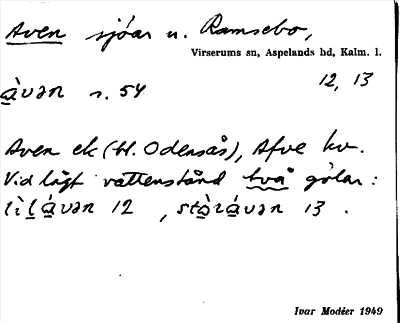 Aven sjöar n. Ramsebo,
Virserums sn, Aspelands hd, Kalm. l.
àvən s. 54 12, 13
Aven ek (bl. Odensås), Afve kv.
Vid lågt vattenstånd två gölar:
lìlávən 12, stòrávən 13.
Ivar Modéer 1949